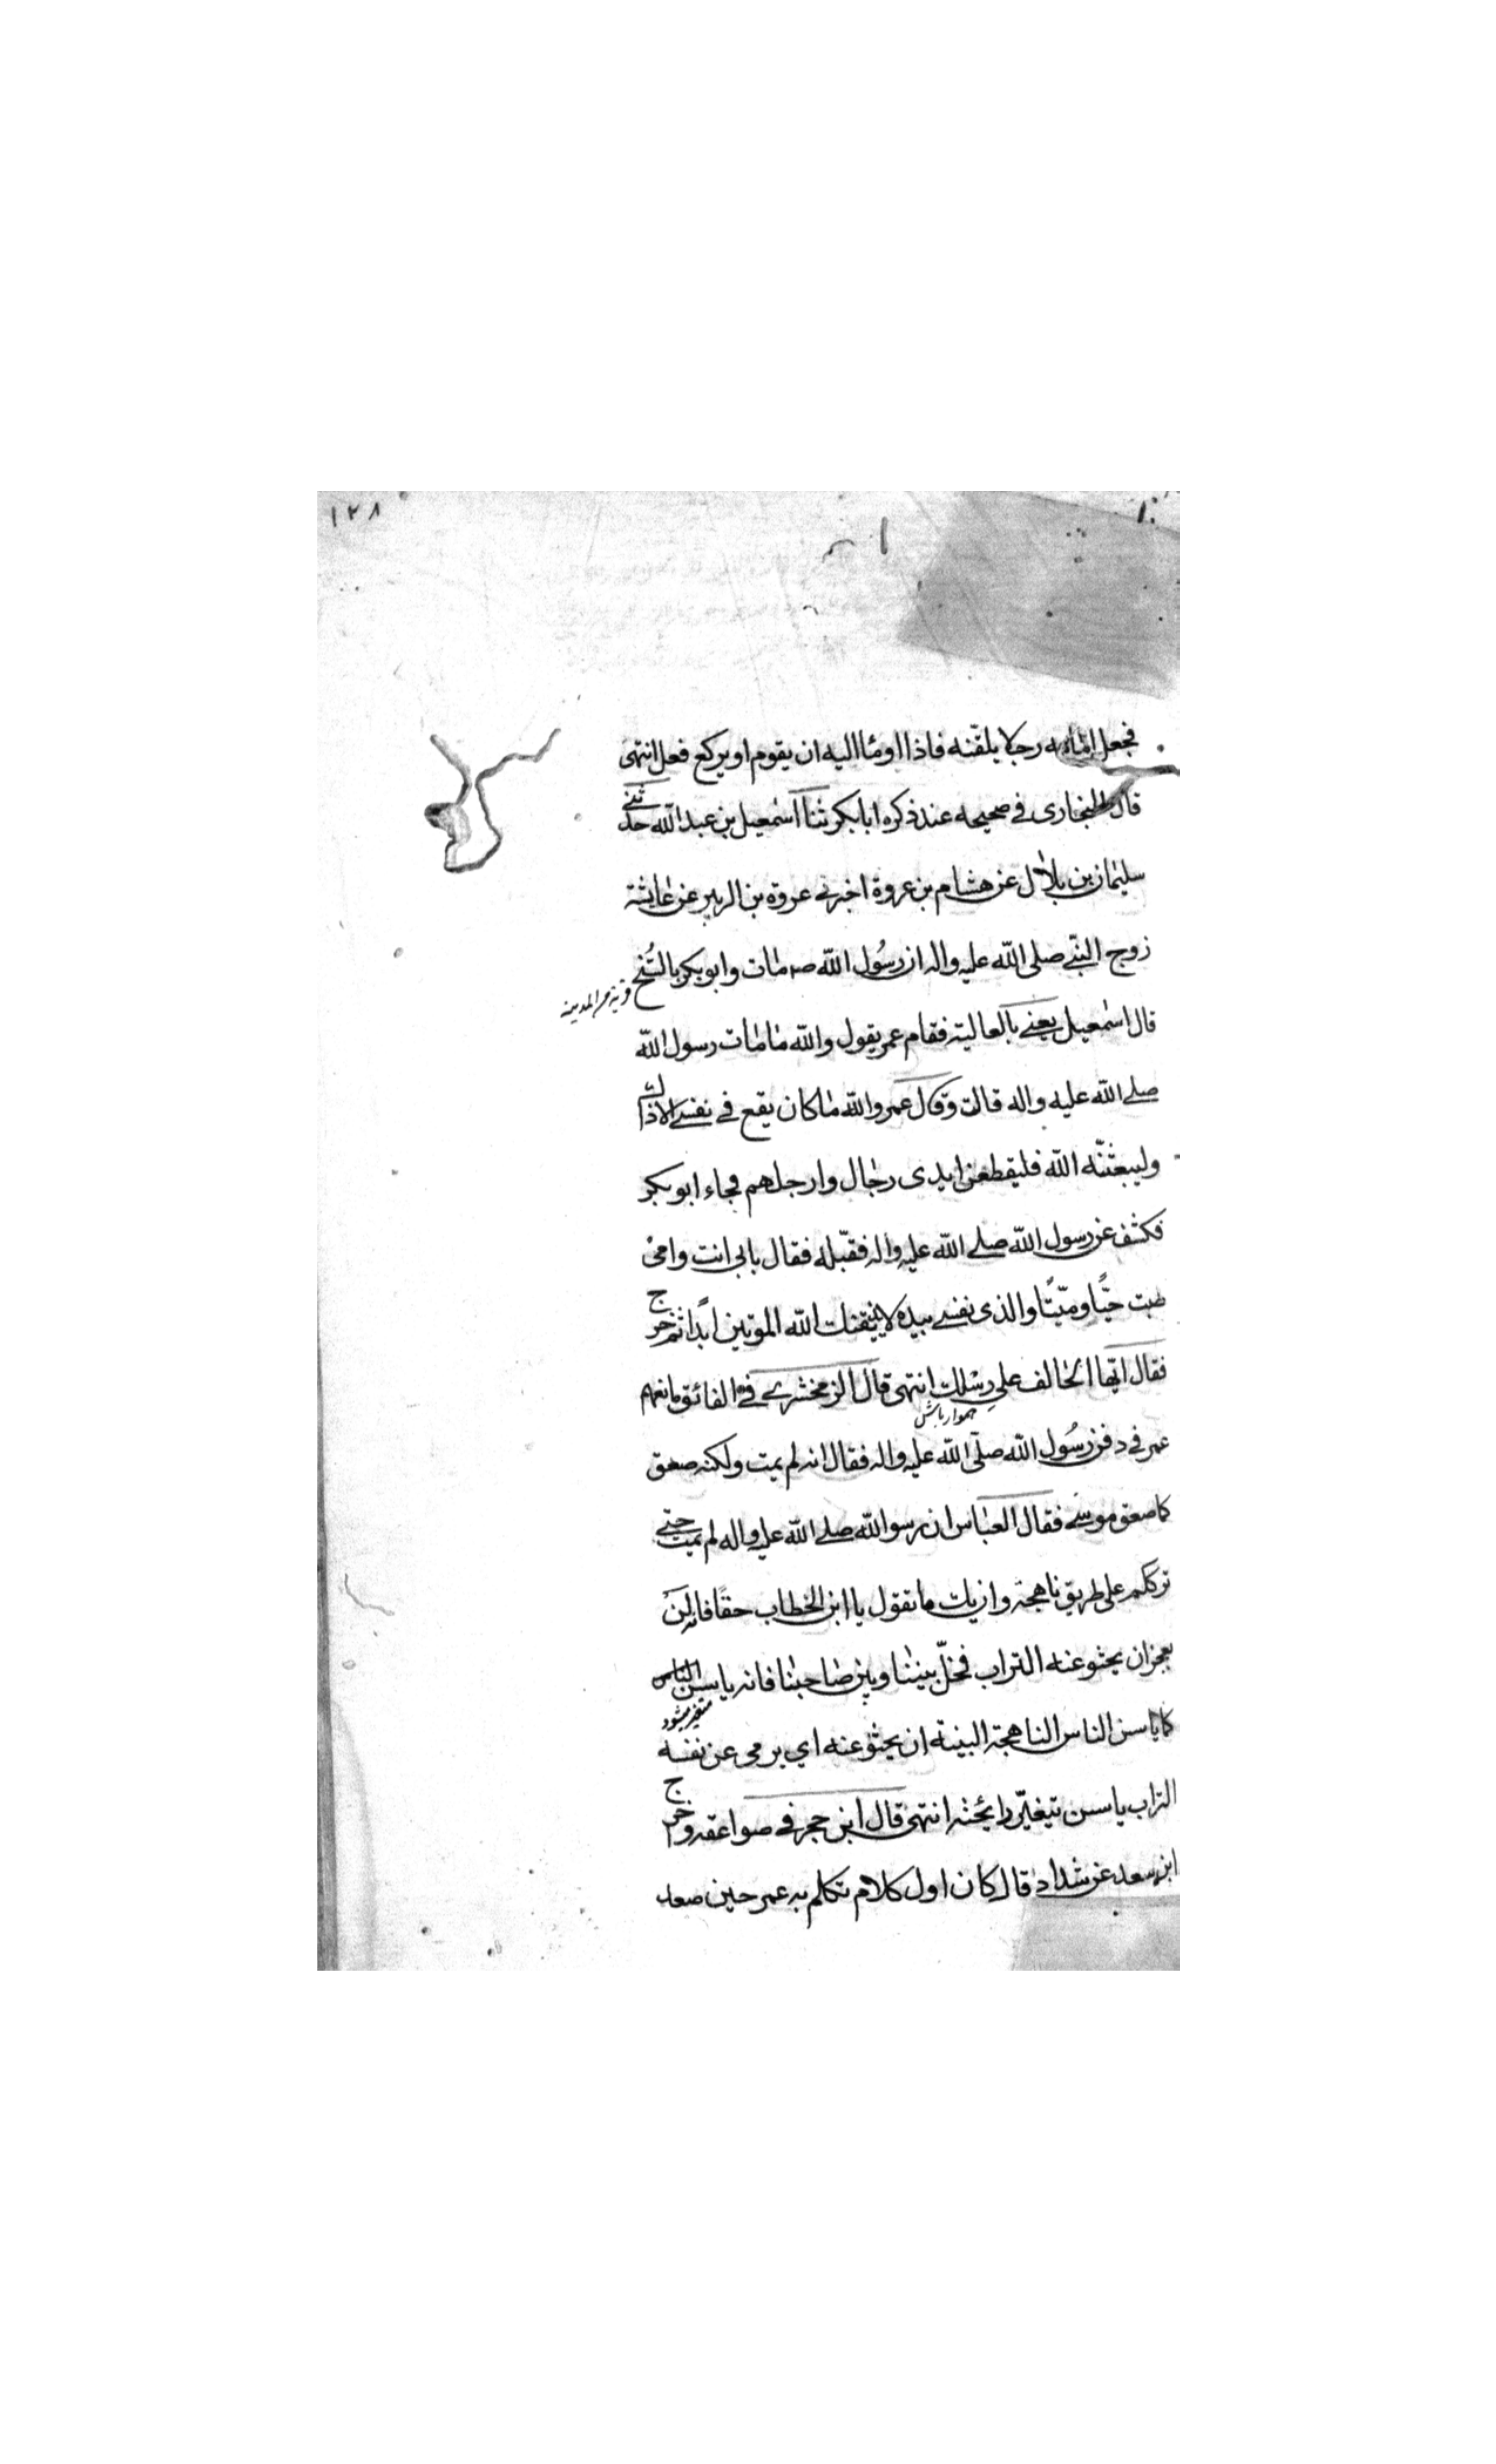 ١٢٨
فجعل امامه رجلا يلقّنه فاذا اومأ اليه ان يقوم او يركع فعل انتهى
قال البخارى فے صحيحه عند ذكره ابا بكر ثنا اسمعيل بن عبد الله حدثنے
سليمان بن بلال عن هشام بن عروة اخبرنے عروة بن الزبير عن عايشة
زوج النبّے صلى الله عليه واله ان رسُول الله صه مات وابو بكر بالسُّنح
قرية من المدينه
قال اسمعيل يعنے بالعالية فقام عمر يقول والله ما مات رسول الله
صلے الله عليه واله قالت وقال عمر والله ما كان يقع فے نفسے الا ذلك
وليبعثنّه الله فليقطعن ايدى رجال وارجلهم فجاء ابو بكر
فكشف عن رسول الله صلے الله عليه واله فقبّله فقال بابى انت وامّى
طبت حيًّا وميّتًا والذى نفسے بيده لا يذيقنك الله الموتين ابدًا ثم خرج
فقال ايّها الحالف علےٰ رِسْلك انتهى قال الزمخشرے فے الفائق مانعهم
هموار باش
عمر فے دفن رسُول الله صلّى الله عليه واله فقال انه لم يمت ولكنه صعق
كما صعق موسےٰ فقال العباس ان رسو الله صلے الله عليه واله لم يمت حتّے
ترككم على طريق ناهجة وان يك ما تقول يا ابن الخطاب حقًا فانه لن
يعجز ان يحثو عنه التراب فخلّ بيننا وبين صاحبنا فانه ياسن الناس
متغير ميشود
كما ياسن الناس الناهجة البينة ان يحثو عنه اي يرمى عن نفسه
التراب ياسن يتغيّر رايحته انتهى قال ابن حجر فے صواعقه وخرج
ابن سعد عن شداد قال كان اول كلام تكلم به عمر حين صعد